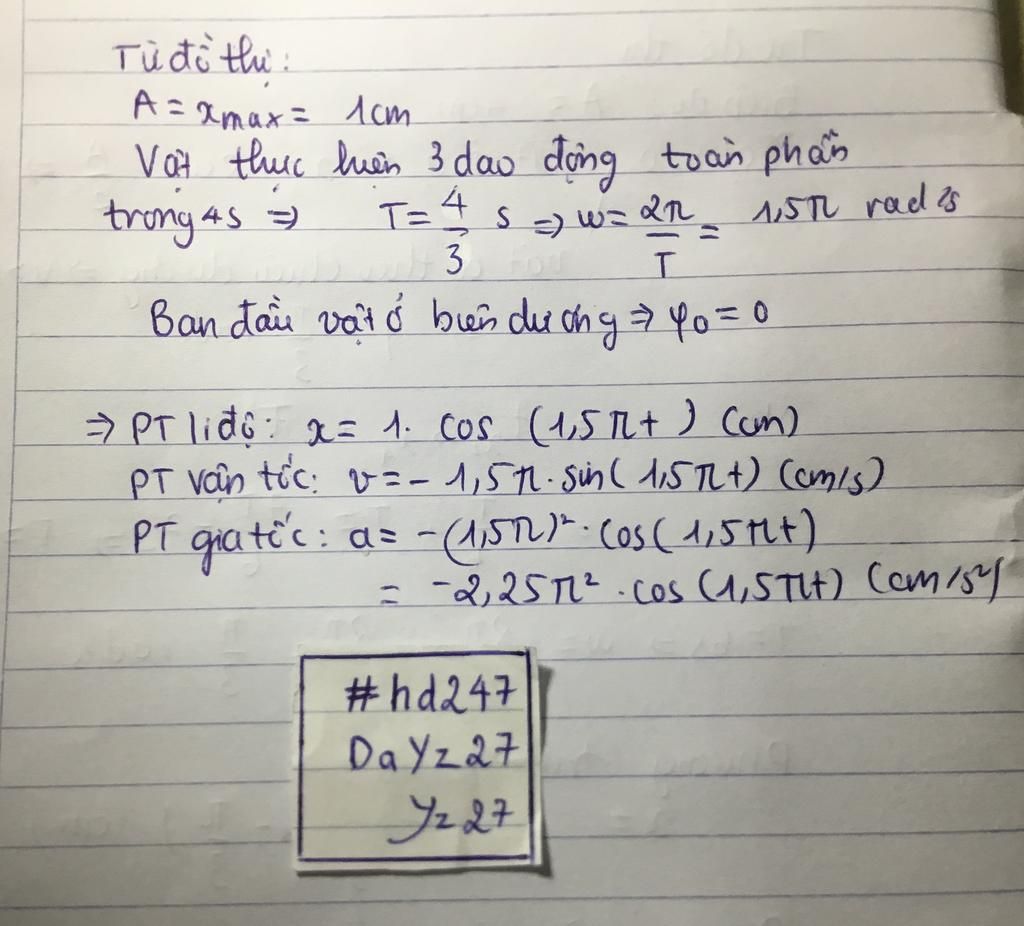 Từ đồ thị:
A = xmax = 1cm
Vật thực hiện 3 dao động toàn phần
trong 4s => T = 4/3 s => ω = 2π/T = 1,5π rad/s
Ban đầu vật ở biên dương => φ0 = 0
=> PT li độ: x = 1. cos (1,5πt) (cm)
PT vận tốc: v = - 1,5π.sin(1,5πt) (cm/s)
PT gia tốc: a = -(1,5π)².cos(1,5πt)
= -2,25π².cos(1,5πt) (cm/s²)
#hd247
DaYz27
Yz27